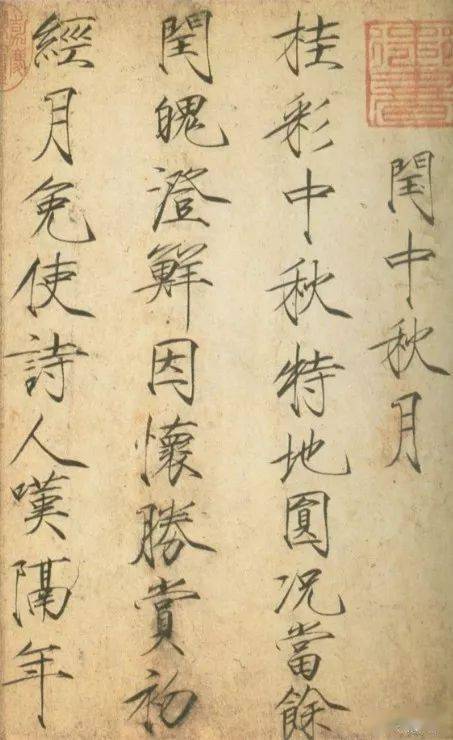 閏中秋月
桂彩中秋特地圓况當餘
閏魄澄鮮因懷勝賞初
經月免使詩人嘆隔年